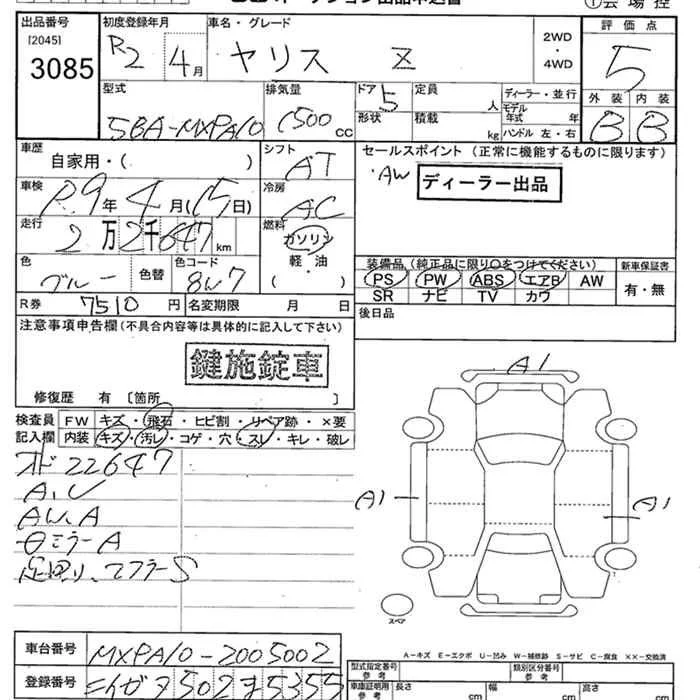 ①会場控
出品番号 初度登録年月 車名・グレード 評価点
[2045]
3085
R2 4月
ヤリス Z
2WD
・
4WD
5
外装 内装
B B
型式 排気量 ドア 定員 人 ディーラー・並行
5BA-MXPA10 1500 cc 5
形状 積載 kg モデル年式 年
ハンドル 左・右
車歴 シフト セールスポイント (正常に機能するものに限ります)
自家用・( ) AT
AW ディーラー出品
車検 冷房
R9年4月(15日) AC
走行 燃料
2万2千647km ガソリン
軽・油
( )
色 色替 色コード
ブルー 8W7
装備品(純正品に限り○をつけてください) 新車保証書
PS PW ABS エアB AW 有・無
SR ナビ TV カワ
R券 7510円 名変期限 月 日
後日品
注意事項申告欄(不具合内容等は具体的に記入して下さい)
鍵施錠車
修復歴 有 〔箇所 〕
検査員 FW キズ・飛石・ヒビ割・リペア跡・×要
記入欄 内装 キズ・汚レ・コゲ・穴・スレ・キレ・破レ
オド22647
A、U
AW、A
日ミラーA
足回り、マフラーS
A1
A1
A1
スペア
A-キズ E-エクボ U-凹み W-補修跡 S-サビ C-腐食 ××-交換済
車台番号 MXPA10-2005002
登録番号 502 5355
型式指定番号 参考 類別区分番号 参考
車庫証明用 参考 長さ cm 幅 cm 高さ cm